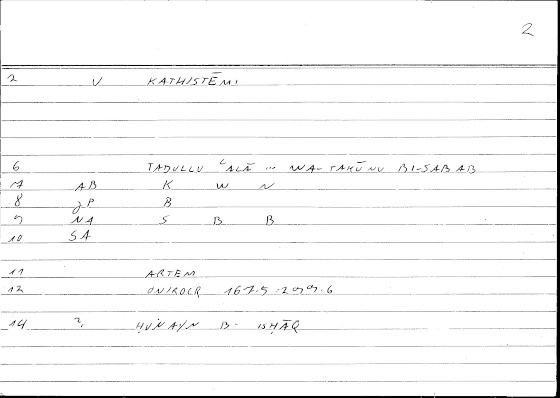 2
2 V KATHISTĒMI
6 TADULLU ʿALĀ ... WA-TAKŪNU BI-SABAB
7 AB K W N
8 JP B
9 NA S B B
10 SA
11 ARTEM
12 ONIROCR 167.5 - 299.6
14 2. ḤUNAYN B- ISḤĀQ